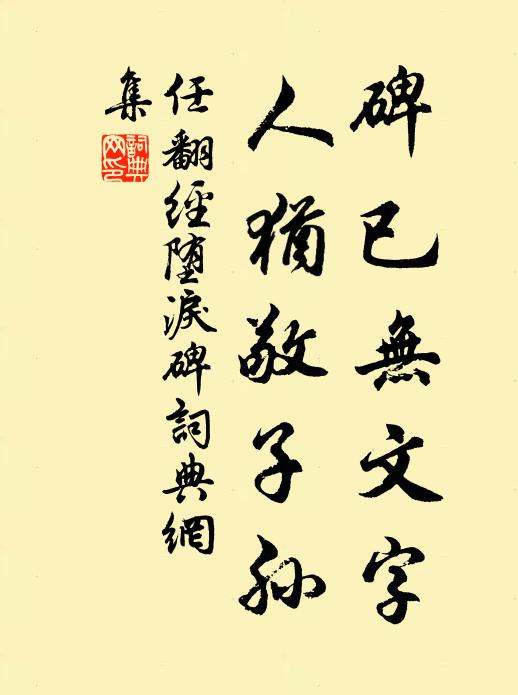 碑已無文字
人猶敬子孫
任翻經堕淚碑詞典網
集
詞典網印